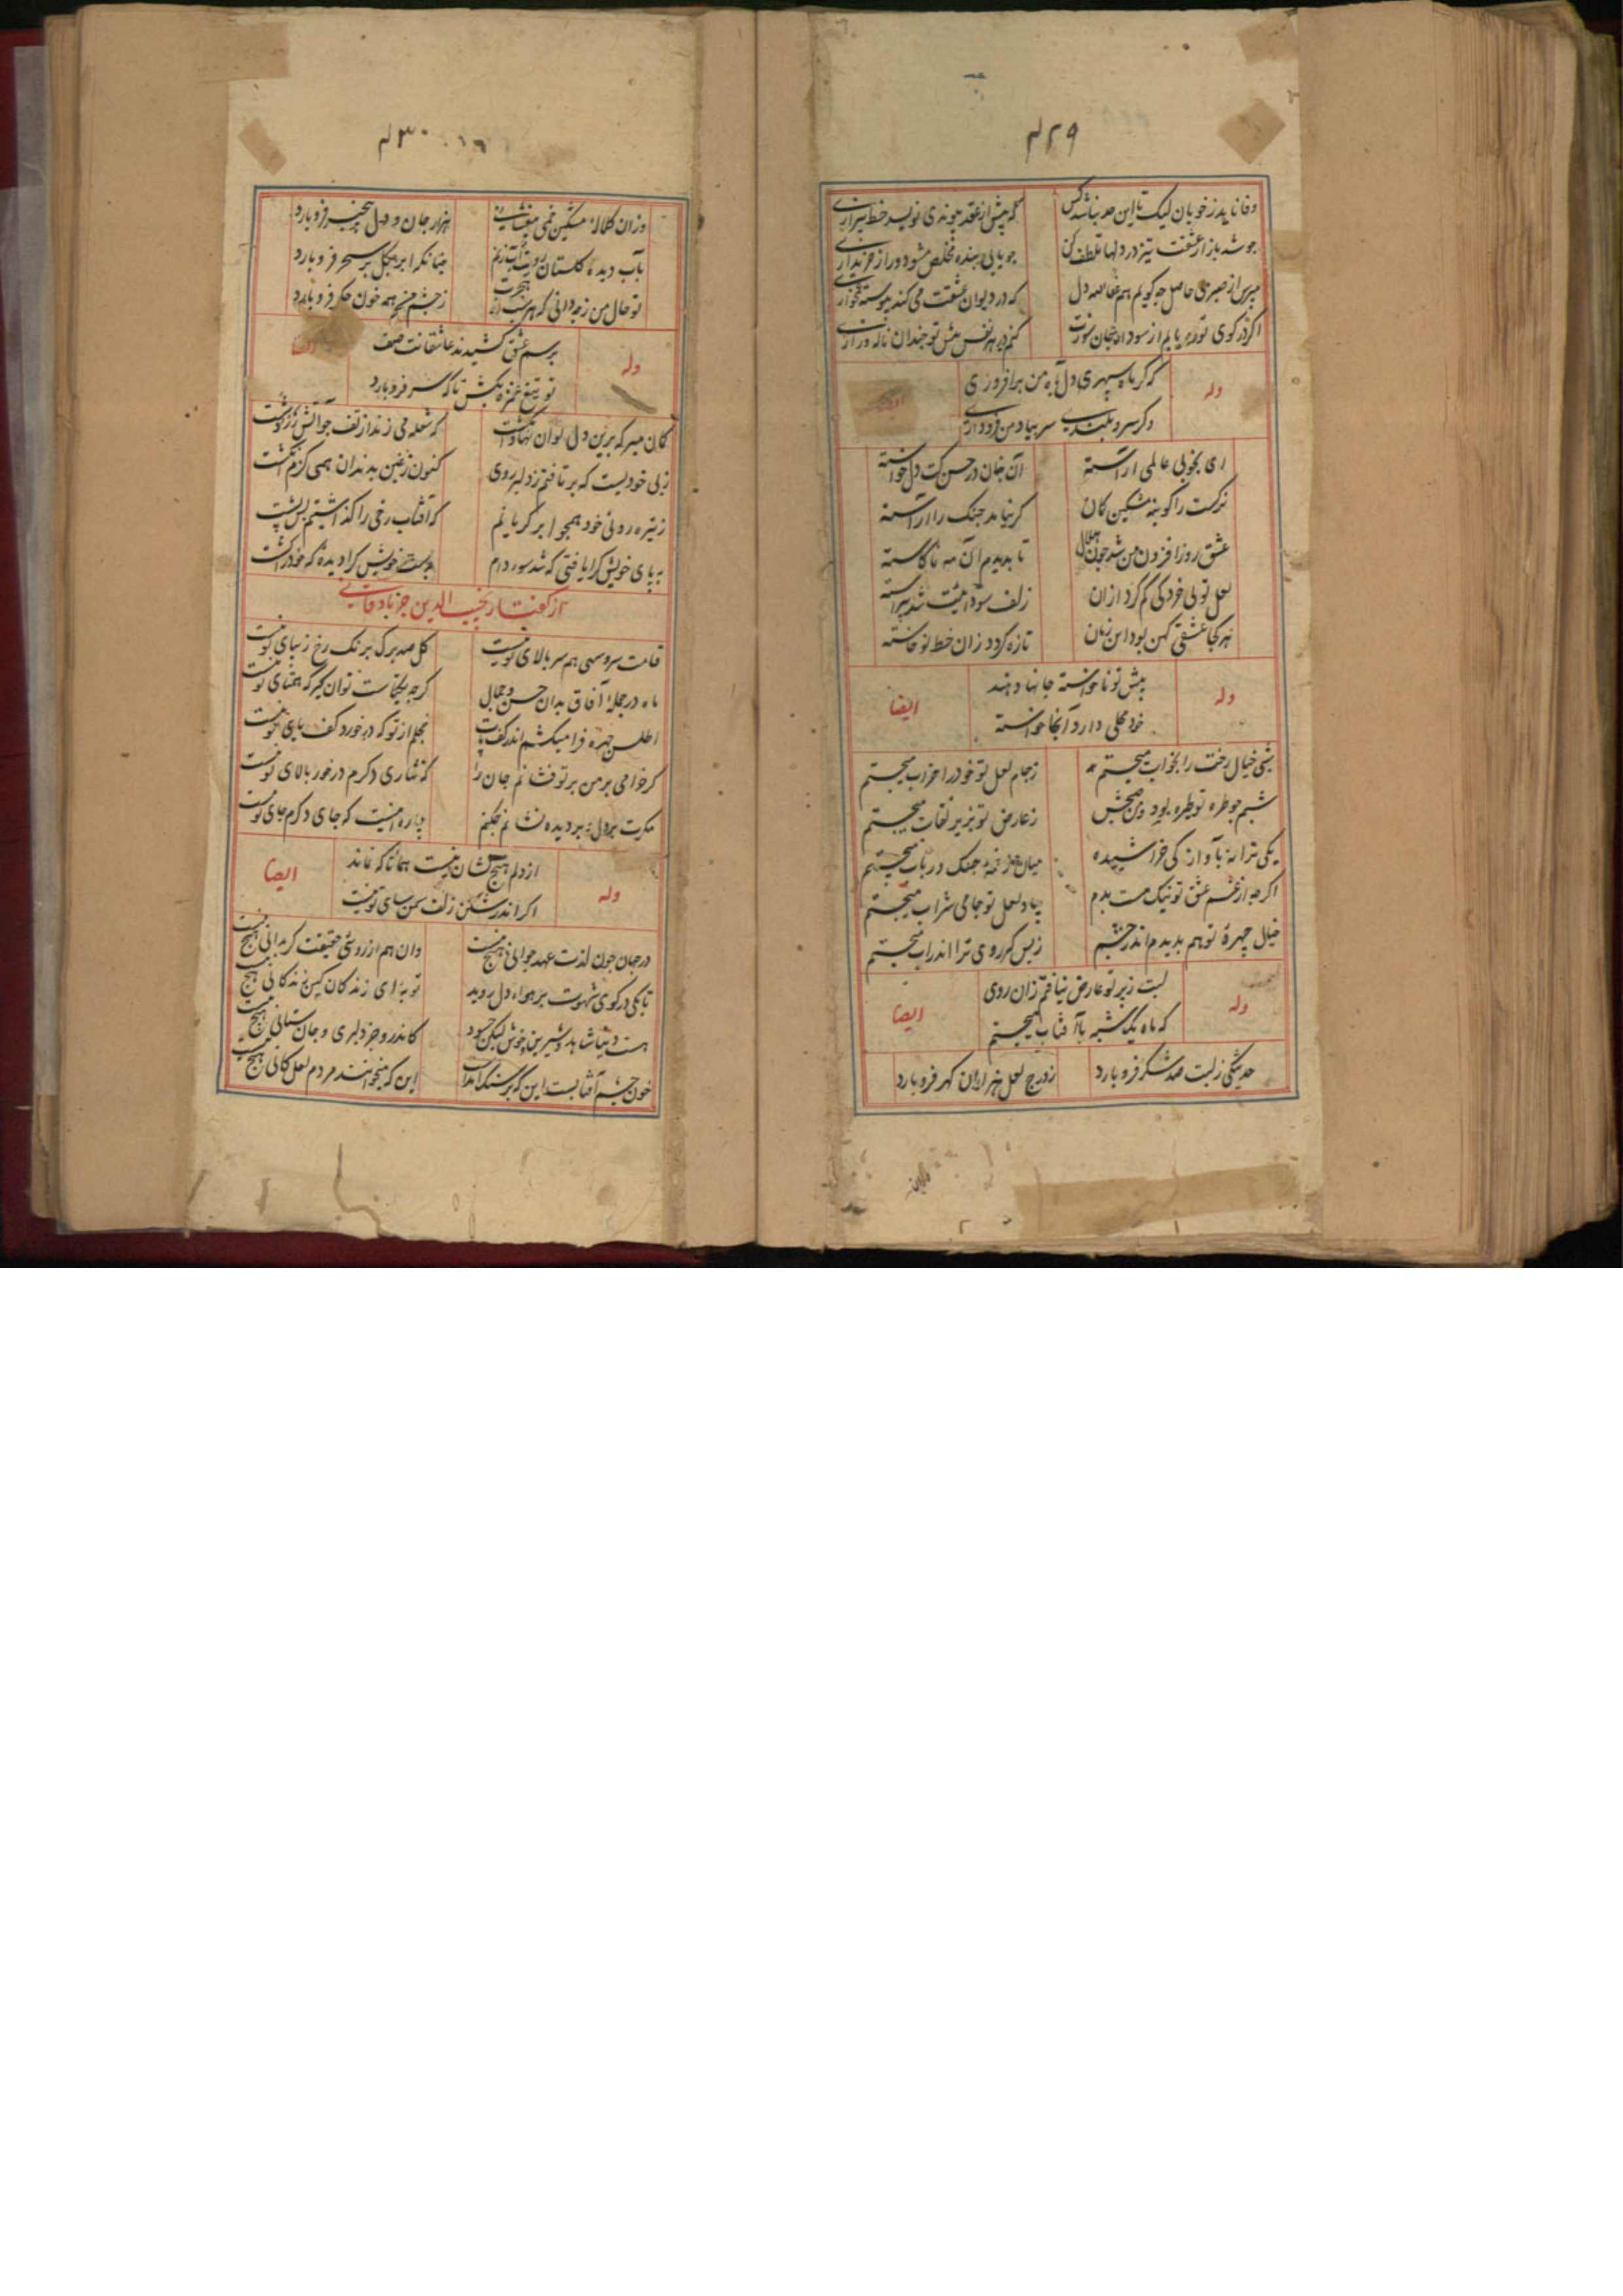 ۴۲۹
وفا ناید ز خوبان لیک تا این حد نباشد کس
که پیش از عقد پیوندی نویسد خط بیزاری
جو شد بازار عشقت تیز در دلها تلطف کن
جو یابی بنده مخلص مشو دور از خریداری
مپرس از صبر بی حاصل جه کویم هم
که در دیوان عشقت می کند پیوسته
اکر در کوی تو ره یابم از سودای جان سوزت
کنم در هر نفس پیش تو جندان ناله و زاری
وله
که کر ماه سپهری دل به آه من برافروزی
ایضا
وکر سرو بلندی سر بیاد من فرود آری
ای بخوبی عالمی آراسته
آن جنان در حسن کت دل خواسته
نرکست را کو بنه مشکین کمان
کر نباید جنک را آراسته
عشق روز افزون من شد جون هلال
تا بدیدم آن مه ناکاسته
لعل تو بی خردکی کم کرد ازان
زلف سودائیت شد پیراسته
هر کجا عشقی کهن بود این زمان
تازه کردد زان خط نو خاسته
وله
پیش تو ناخواسته جانها دهند
ایضا
خود محلی دارد آنجا خواسته
شبی خیال رخت را بخواب میجستم
ز جام لعل تو خود را خراب میجستم
شبم جو طره تو طره بود و من صبحش
ز عارض تو بزیر نقاب میجستم
یکی ترانه بآواز کی خراشیده
میان زخمه جنک و رباب میجستم
اکر جه از غم عشق تو نیک مست بدم
بیاد لعل تو جامی شراب میجستم
خیال چهرهٔ تو هم بدیدم اندر چشم
ز بس که روی ترا اندر آب میجستم
وله
لبت زیر تو عارض نیافتم زان روی
ایضا
که ماه یک شبه با آفتاب میجستم
حدیثکی ز لبت صد شکر فرو بارد
ز درج لعل هزاران کهر فرو بارد
۴۳۰
وزان کلالهٔ مشکین خمی بیفشانی
هزار جان و دل بیخبر فرو بارد
بآب دیده کلستان رویت آب زنم
جنانکه ابر بکل بر سحر فرو بارد
تو حال من ز جه دانی که هر شب از هجرت
ز چشم من همه خون جکر فرو بارد
وله
برسم عشق کشیدند عاشقانت صف
ایضا
تو تیغ غمزه بکش تا که سر فرو بارد
کمان مبر که برین دل توان نهاد انکشت
که شعله می زند از تف جو آتش زردشت
ز بی خودیست که برتافتم ز دلبر روی
کنون ز غبن بدندان همی کزم انکشت
ز تیره رویی خود همجو ابر کریانم
که آفتاب رخی را کذاشتم پس پشت
به پای خویش کرا یافتی که شد سوی دام
بدست خویش کرا دیدهٔ که خود را کشت
از کفتار نجیب الدین جرباذقانی
قامت سرو سهی هم سر بالای تو نیست
کل صد برک برنک رخ زیبای تو نیست
ماه در جملهٔ آفاق بدان حسن و جمال
کرچه یکتاست توان کیر که همتای تو نیست
اطلس چهره فرا میکشم اندر کف پات
خجلم از تو که در خورد کف پای تو نیست
کر خرامی بر من بر تو فشانم جان را
که نثاری دکرم در خور بالای تو نیست
مکرت بر دل و بر دیده نشانم جکنم
چاره اینست که جای دکرم جای تو نیست
وله
از دلم هیچ نشان نیست همانا که نماند
ایضا
اکر اندر شکن زلف سمن سای تو نیست
در جهان جون لذت عهد جوانی هیچ نیست
وان هم از روی حقیقت کر بدانی هیچ نیست
تا بکی در کوی شهوت بر هواء دل روید
توبه ای زندکان کین زندکانی هیچ نیست
هست دنیا شاهد و شیرین و خوش لیکن جه سود
کاندرو جز دلبری و جان ستانی هیچ نیست
خون چشم آفتابست این که بر سنک آمدست
این که میخوانند مردم لعل کانی هیچ نیست